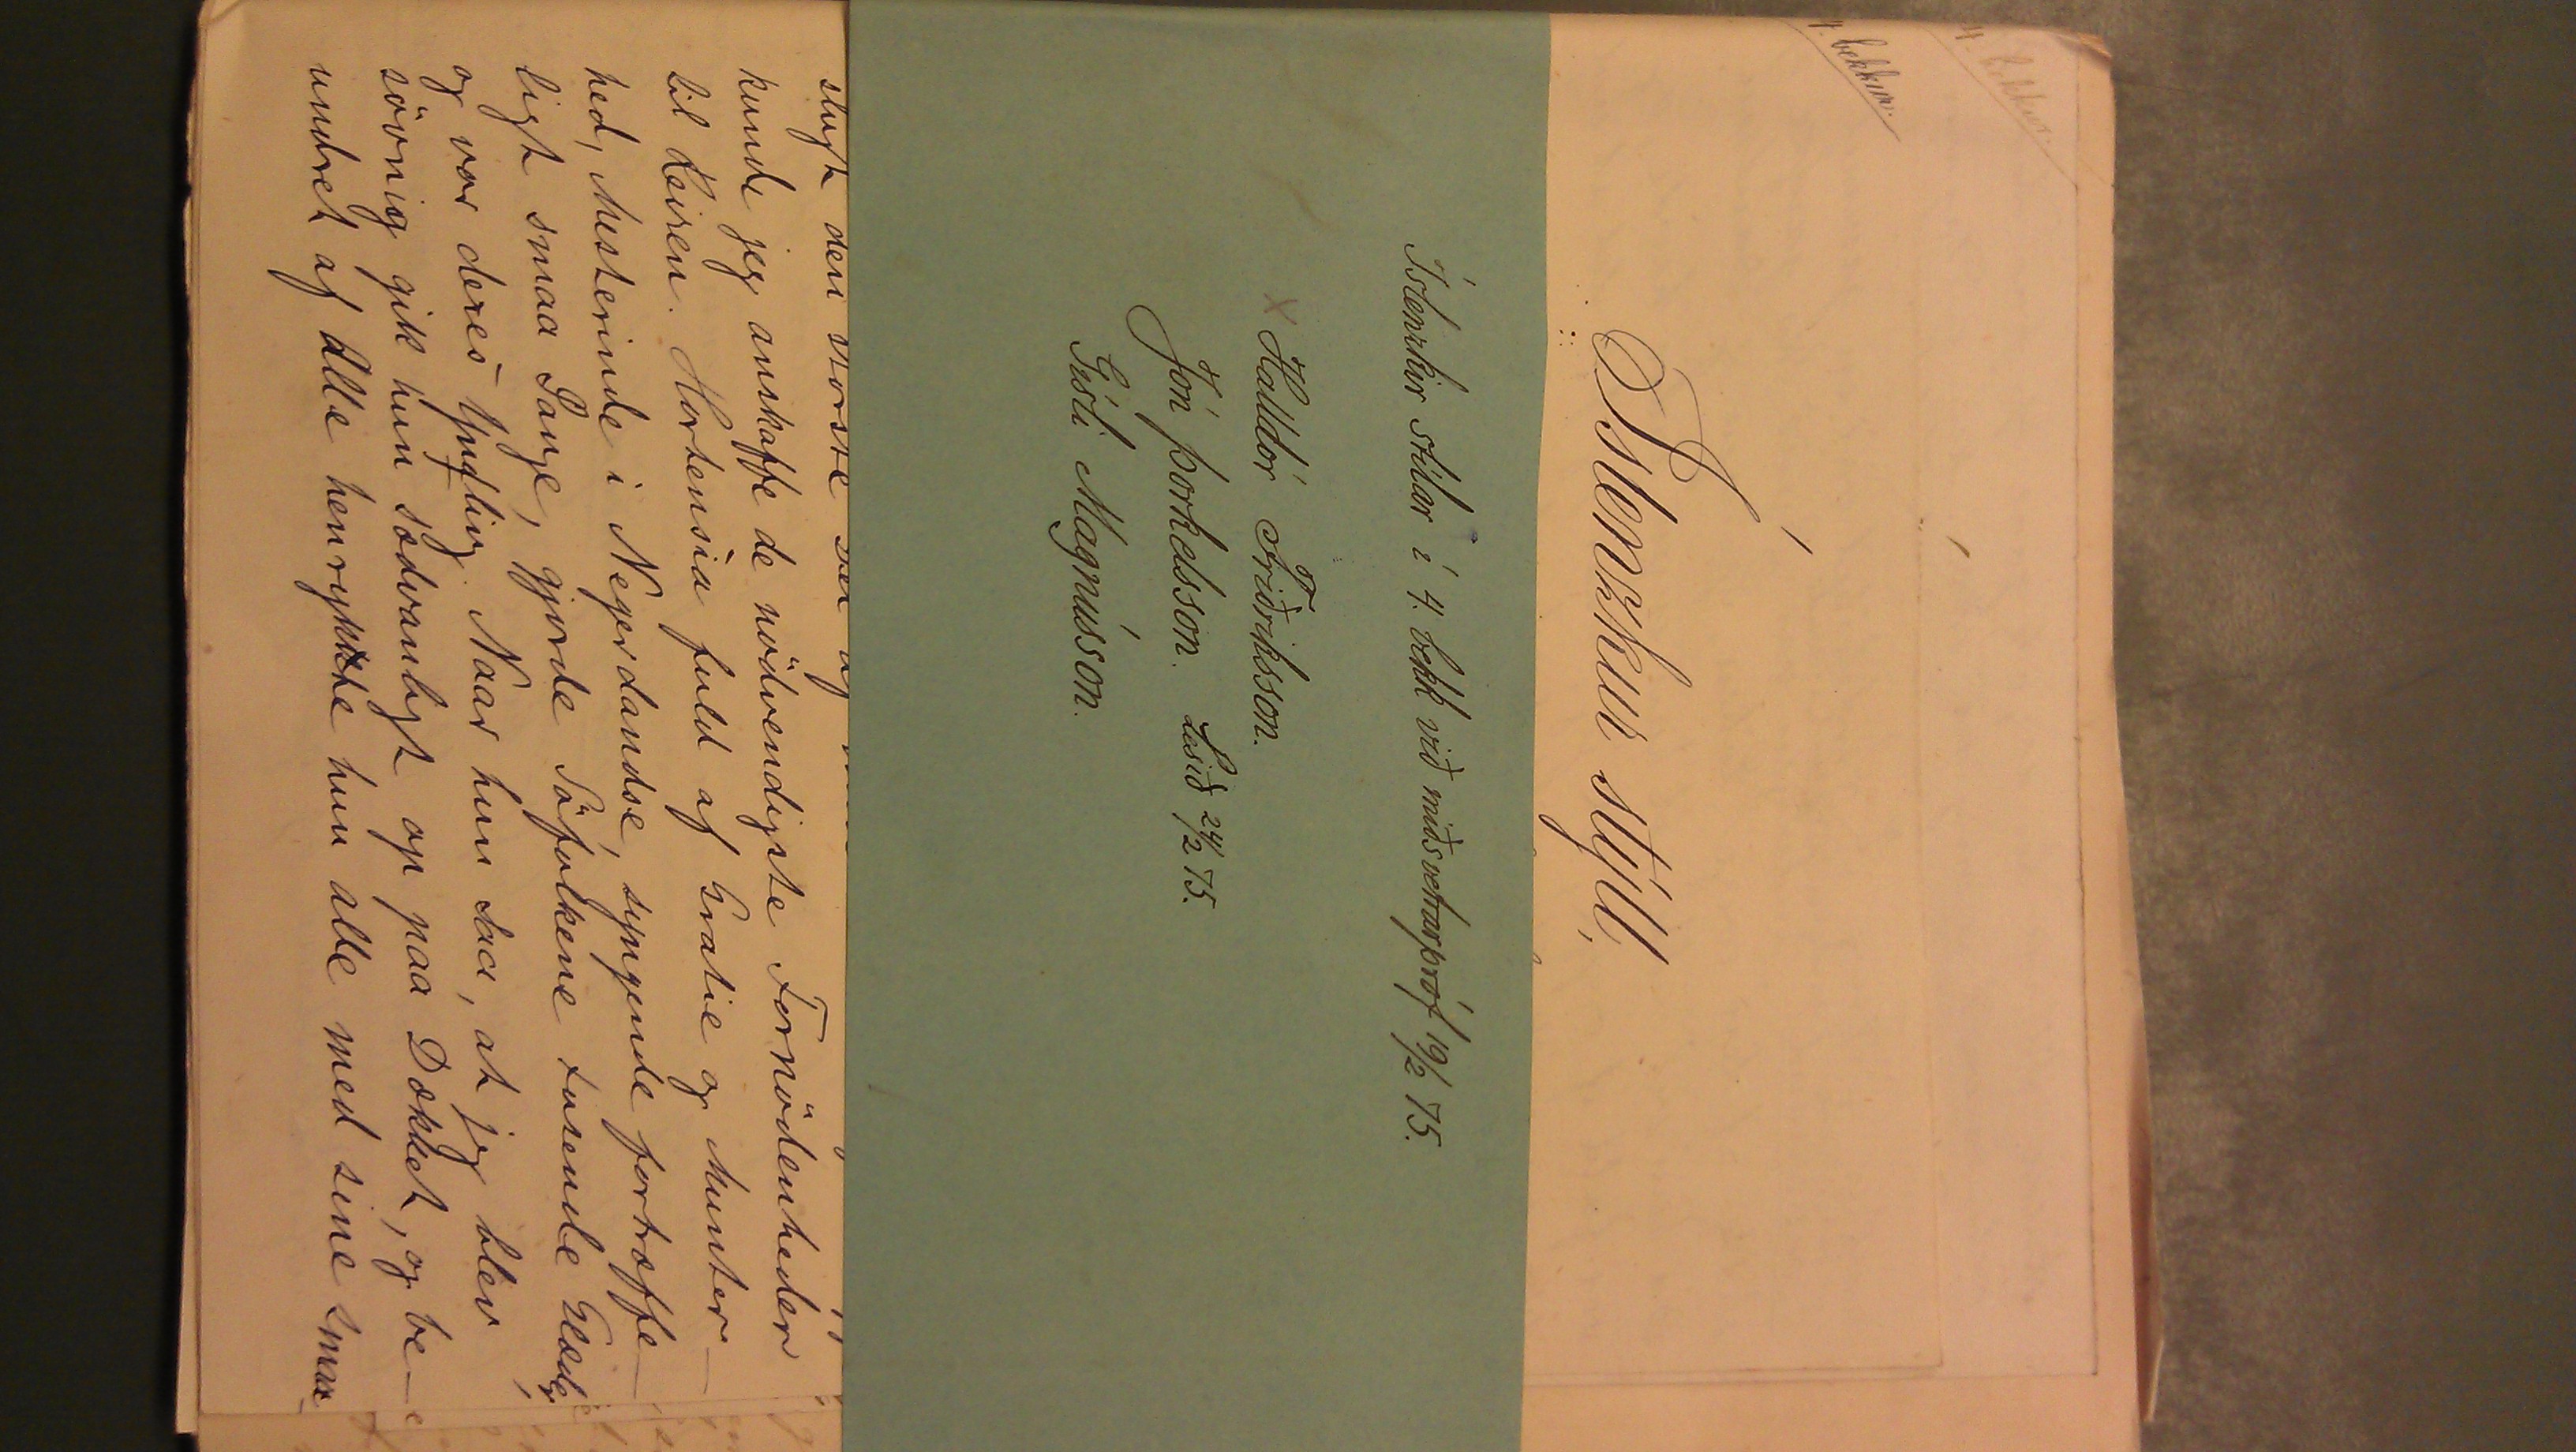 4. bekkur.
4. bekkur.
Íslenzkur stýll,
Íslenzkir stílar í 4. bekk við miðsvetrarpróf 19/2 75.
x Halldór Friðriksson.
Jón þorkelsson. Lesið 24/2 75.
Gísli Magnússon.
slugt den störste
kunde jeg anskaffe de nödvendigste Fornödenheder
til Reisen. Hortensia fuld af Gratie og Munter-
hed, Mesterinde i Negerdandse, syngende fortræffe-
ligt smaa Sange, gjorde Söfolkene tusende Glæder,
og var deres Yndling. Naar hun saa, at jeg blev
sövnig gik hun sædvanligt op paa Dækket, og be-
undret af Alle henrykkte hun alle med sine smaa